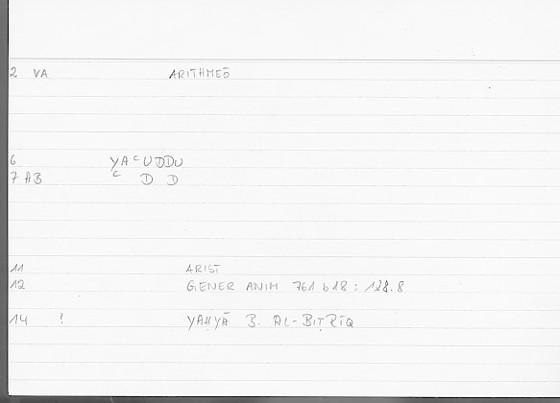 2 VA ARITHMEŌ
6 YAʿUDDU
7 AB ʿ D D
11 ARIST
12 GENER ANIM 761 b 18 : 128.8
14 ! YAḤYĀ B. AL-BIṬRĪQ